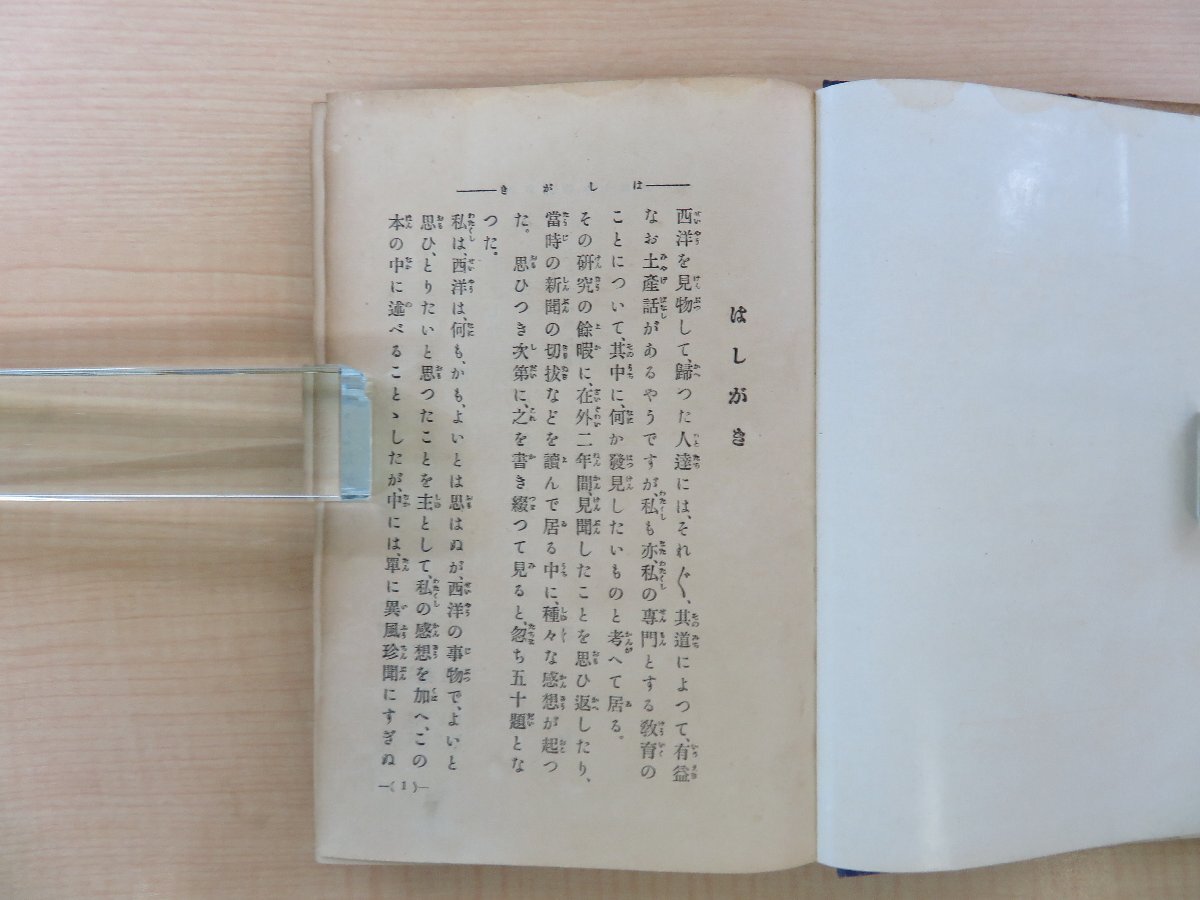 はしがき
はしがき
西洋を見物して、歸つた人達には、それ〴〵、其道によつて、有益
なお土產話があるやうですが、私も亦、私の專門とする敎育の
ことについて、其中に、何か發見したいものと考へて居る。
その硏究の餘暇に、在外二年間、見聞したことを思ひ返したり、
當時の新聞の切拔などを讀んで居る中に、種々な感想が起つ
た。思ひつき次第に、之を書き綴つて見ると、忽ち五十題とな
つた。
私は、西洋は、何も、かも、よいとは思はぬが、西洋の事物で、よいと
思ひ、とりたいと思つたことを主として、私の感想を加へ、この
本の中に述べることゝしたが、中には、單に異風珍聞にすぎぬ
—(1)—